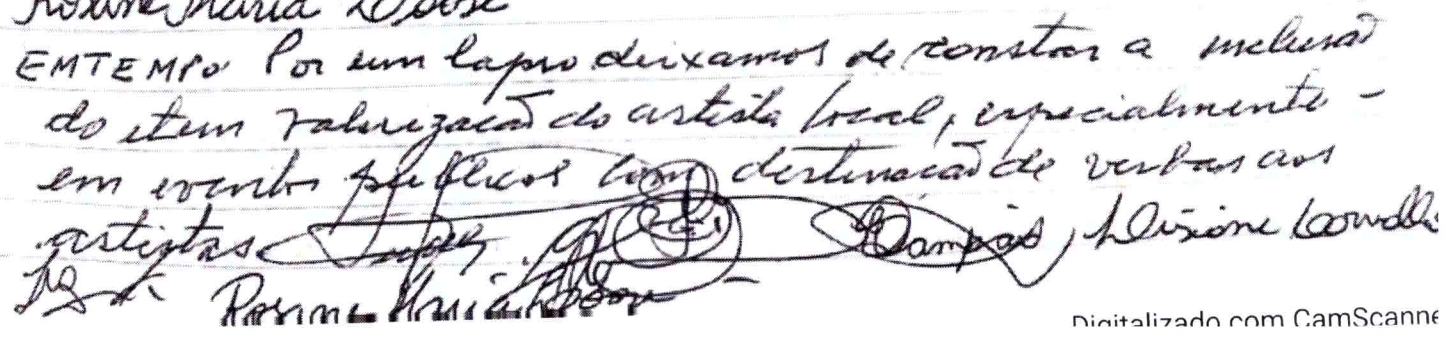 Rosine Maria
EMTEMPO Por um lapso deixamos de constar a inclusão
do item valorização do artista local, especialmente -
em eventos públicos com destinação de verbas aos
artistas
Campos,
Rosine Maria
Digitalizado com CamScanne